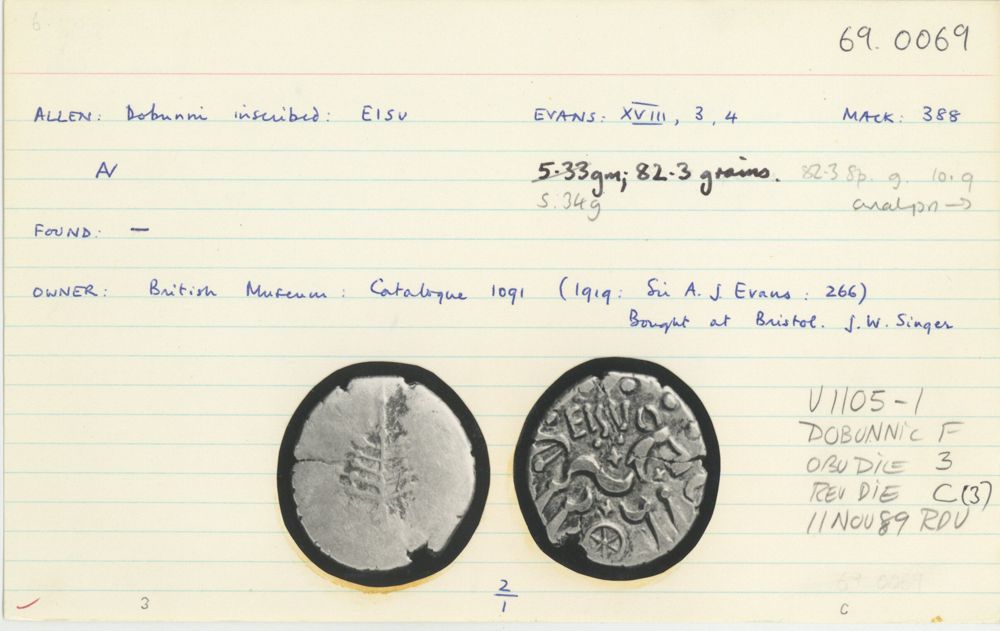 6
69.0069
ALLEN: Dobunni inscribed: EISV EVANS: XVIII, 3, 4 MACK: 388
AV 5.33gm; 82.3 grains. 82.3 Sp. g. 10.9
5.34g analysis →
FOUND: —
OWNER: British Museum: Catalogue 1091 (1919: Sir A. J. Evans: 266)
Bought at Bristol. J. W. Singer
EISV
V1105-1
DOBUNNIC F
OBV DIE 3
REV DIE C(3)
11 NOV 89 RDV
69 0069
3 2/1 C